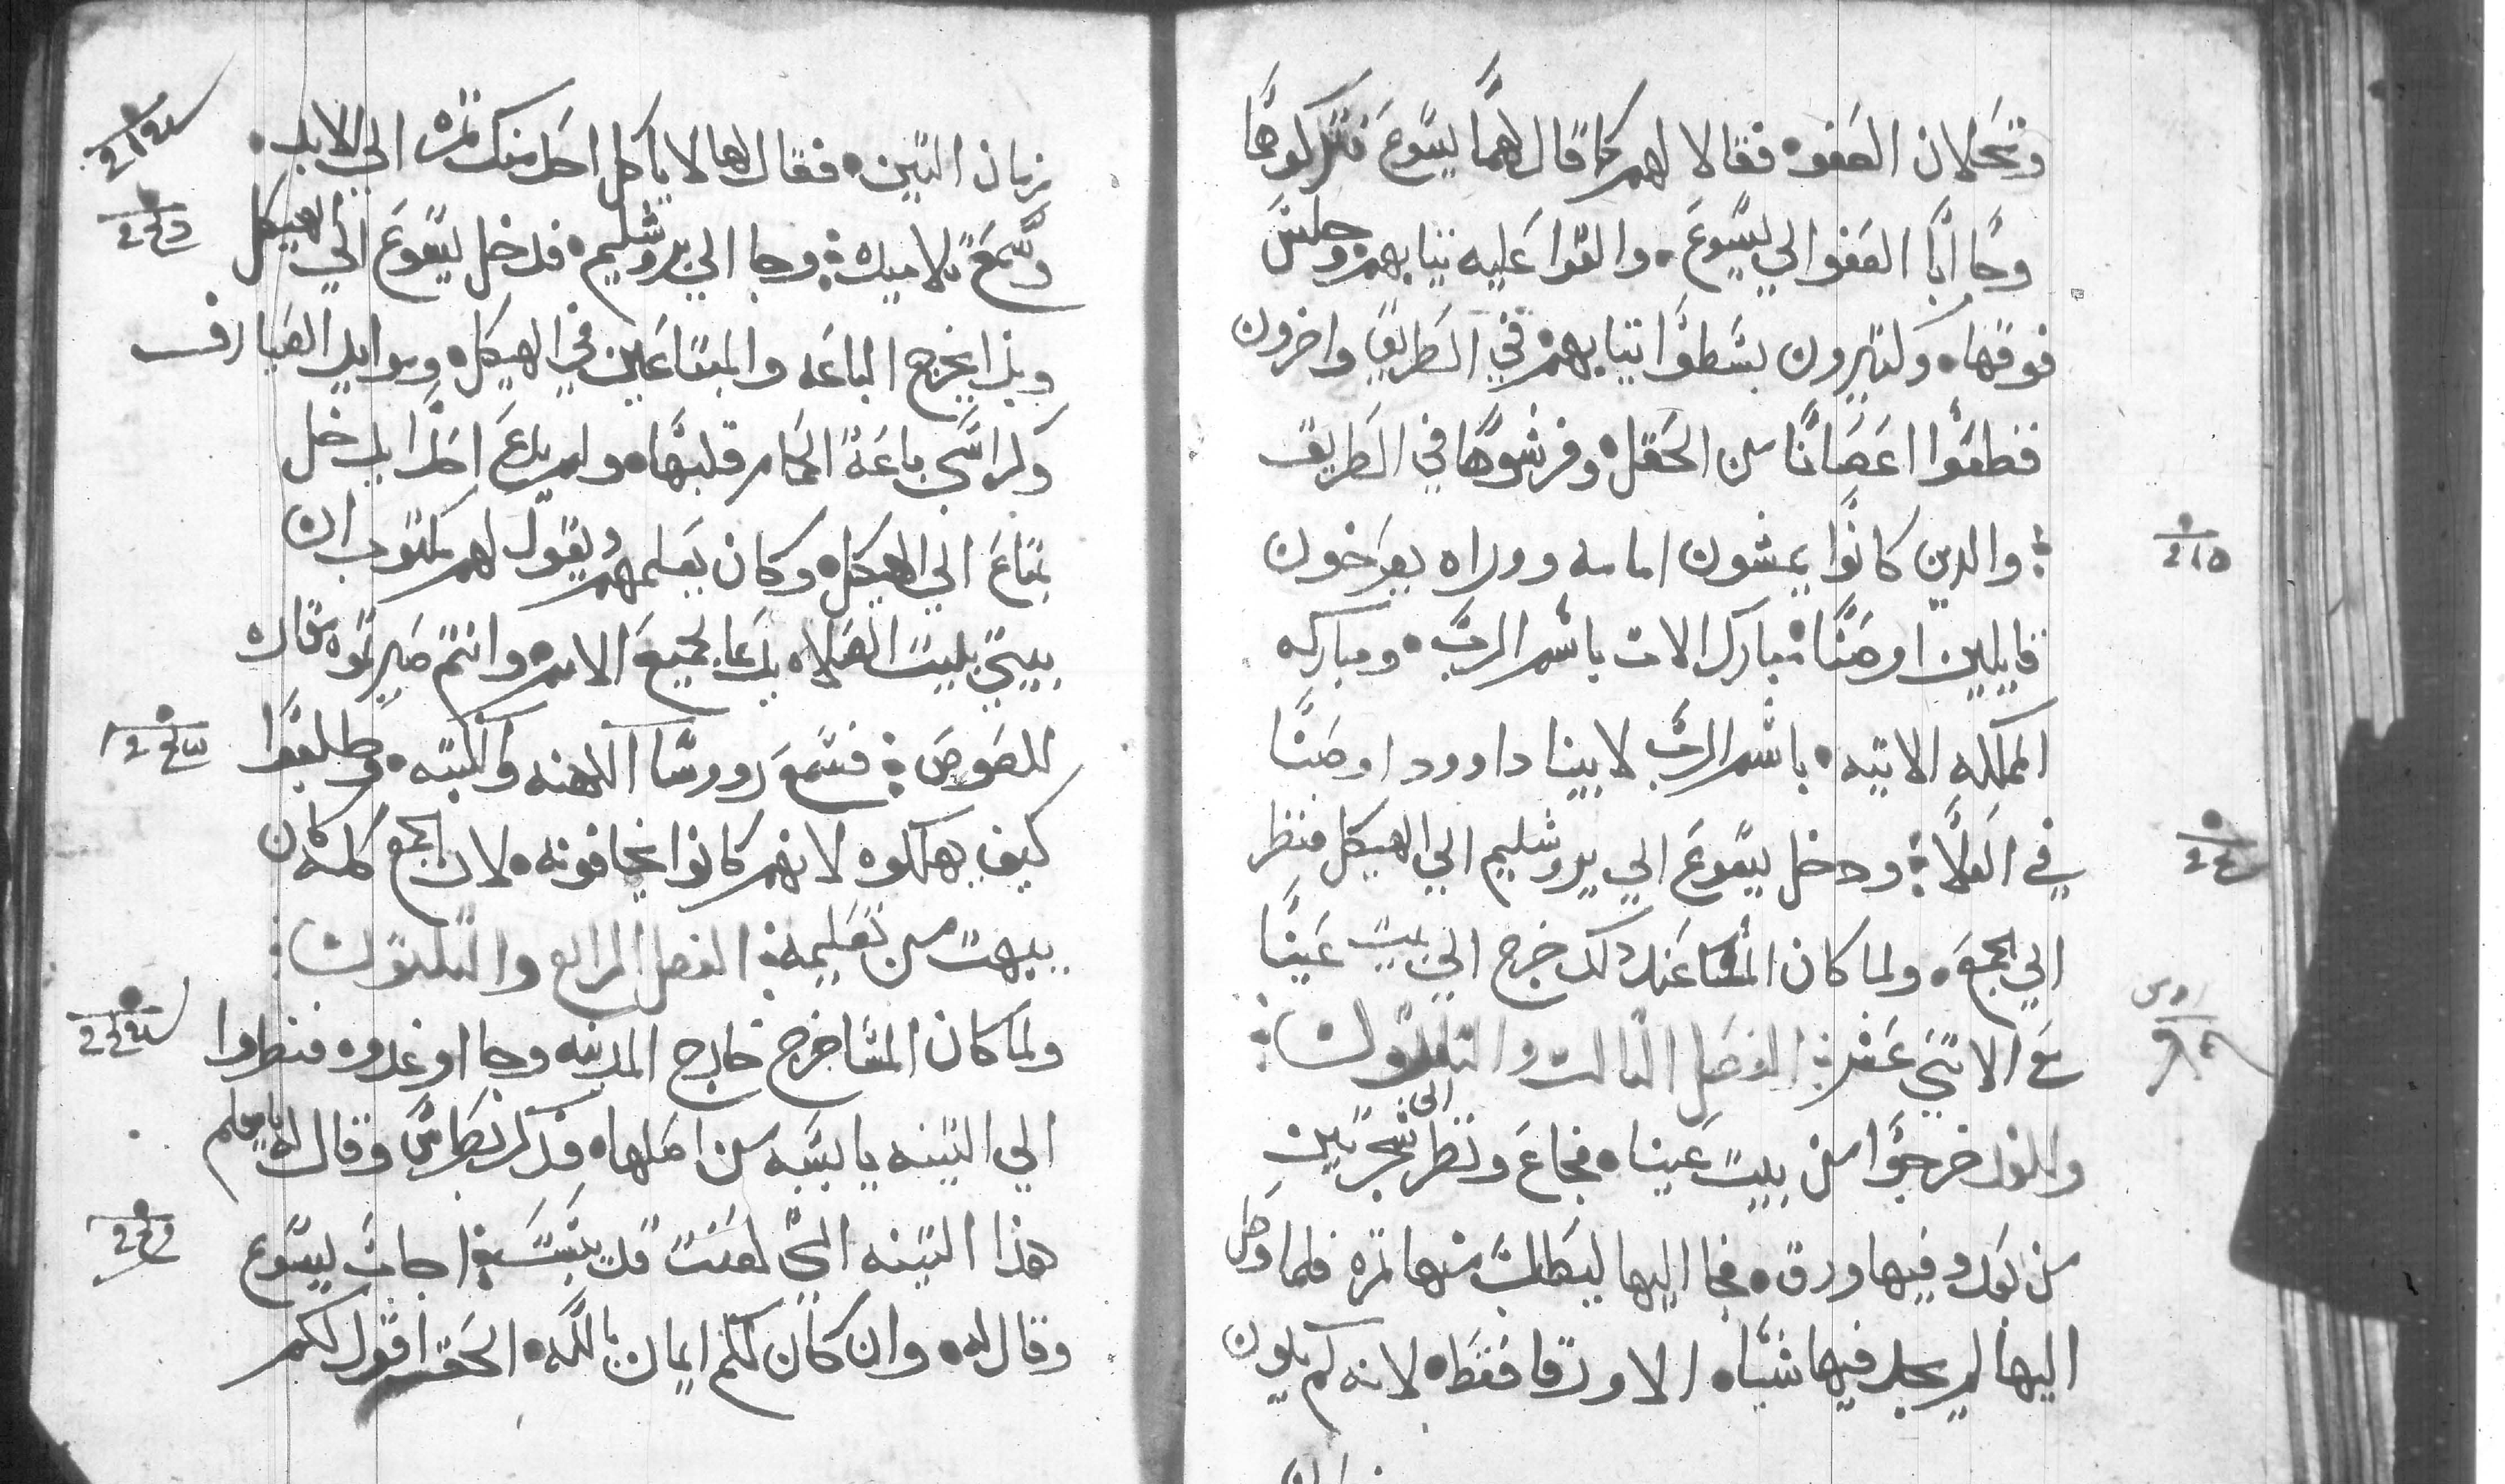 وتحلان العفو فقالا لهم كما قال لهما يسوع فتركوهما
وجاابا العفو الي يسوع والقوا عليه تيابهم وجلس
فوقها وكتيرون بسطوا تيابهم في الطريق واخرون
فطعوا اعصانا من الحقل وفرشوها في الطريق
والدين كانوا يمشون امامه ووراه يصرخون
قايلين اوصنا مبارك الات باسم الرب ومباركه
المملكه الاتيه باسم الرب لابينا داوود اوصنا
في العلا ودخل يسوع الي يروشليم الي الهيكل فنظر
الي الجمع ولما كان المسا عند دلك خرج الي بيت عينا
مع الاتني عشر الفصل التالت والتلتون
وللغد خرجوا من بيت عينا فجاع ونظر الى شجرة تين
من بعد وفيها ورق فجا اليها ليطلب منها تمره فلما وصل
اليها لم يجد فيها شيا الا ورقا فقط لانه لم يكون
زمان التين فقال لها لا ياكل احد منك تمره الي الابد
وسمع تلاميده وجا الي يروشليم فدخل يسوع الي الهيكل
وبدا يخرج الباعه والمبتاعين في الهيكل وموايد الصيارف
وكراسي باعة الحمام قلبها ولم يدع احدا يدخل
بمتاع الي الهيكل وكان يعلمهم ويقول لهم مكتوب ان
بيتي بيت الصلاه يدعا لجميع الامم وانتم صيرتموه مغاره
للصوص فسمع روورسا الكهنه والكتبه وطلبوا
كيف يهلكوه لانهم كانوا يخافونه لان الجمع كله كان
يبهت من تعليمه الفصل الرابع والتلتون
ولما كان المسا خرج خارج المدينه وجا او غدوه فنطروا
الي التينه يابسه من اصلها فدكر بطرس وقال له يا معلم
هذا التينه التي لعنت قد يبست اجاب يسوع
وقال له وان كان لكم ايمان بالله الحق اقول لكم